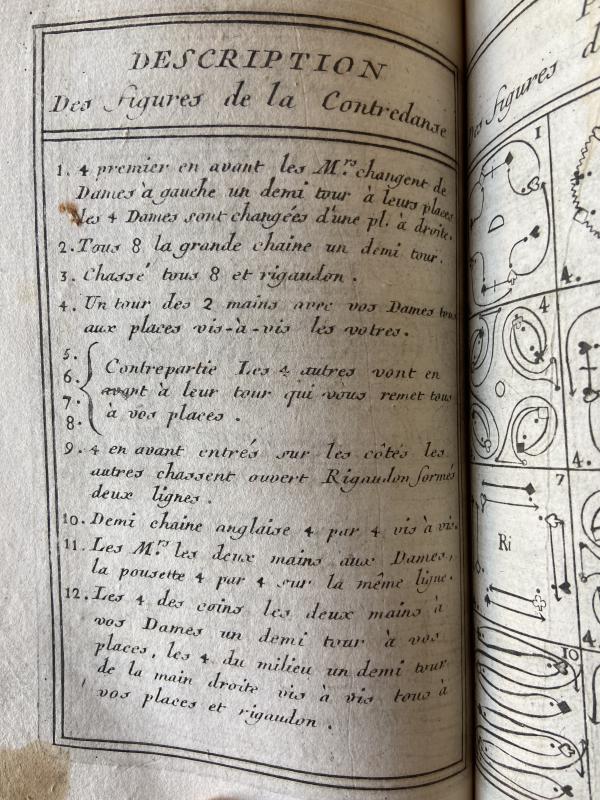 DESCRIPTION
Des figures de la Contredanse
1. 4 premier en avant les M.rs changent de
Dames à gauche un demi tour à leurs places
les 4 Dames sont changées d'une pl. à droite.
2. Tous 8 la grande chaine un demi tour.
3. Chassé tous 8 et rigaudon.
4. Un tour des 2 mains avec vos Dames tous
aux places vis-à-vis les votres.
5.
6.
7.
8.
Contrepartie Les 4 autres vont en
avant à leur tour qui vous remet tous
à vos places.
9. 4 en avant entrés sur les côtés les
autres chassent ouvert Rigaudon formés
deux lignes.
10. Demi chaine anglaise 4 par 4 vis à vis.
11. Les M.rs les deux mains aux Dames,
la pousette 4 par 4 sur la même ligne.
12. Les 4 des coins les deux mains à
vos Dames un demi tour à vos
places, les 4 du milieu un demi tour
de la main droite vis à vis tous à
vos places et rigaudon.
Des figures d
1
D
4.
4
4.
7
Ri
4.
10